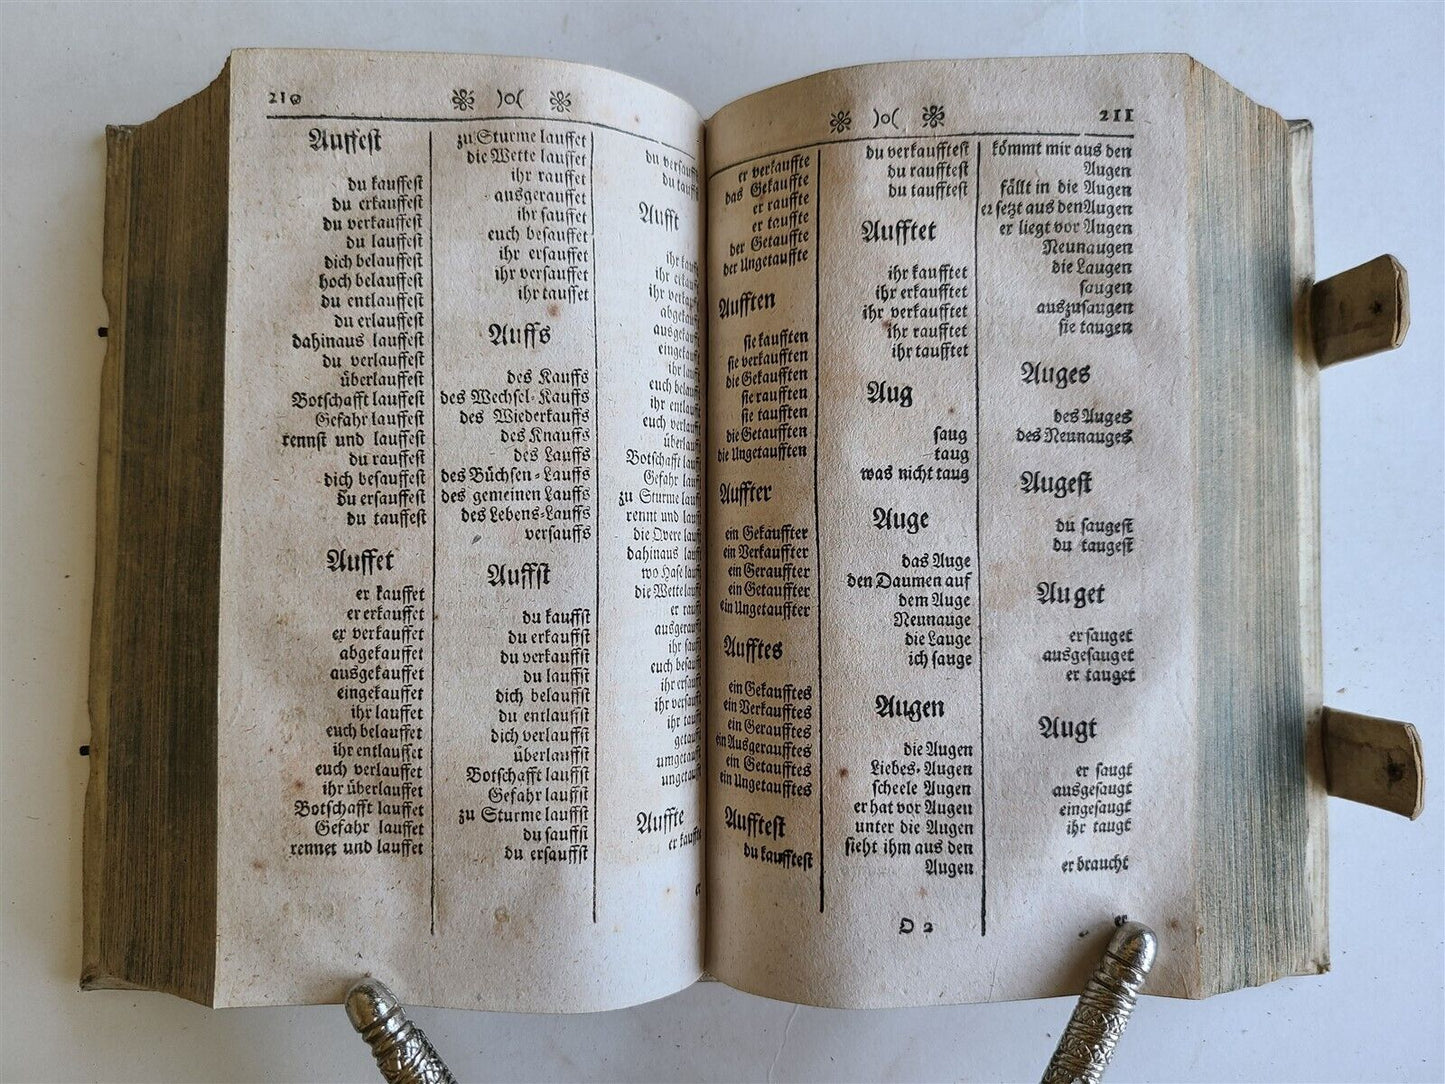 210
)o(
Auffest
du kauffest
du erkauffest
du verkauffest
du lauffest
dich belauffest
hoch belauffest
du entlauffest
du erlauffest
dahinaus lauffest
du verlauffest
überlauffest
Botschafft lauffest
Gefahr lauffest
rennst und lauffest
du rauffest
dich besauffest
du ersauffest
du tauffest
Auffet
er kauffet
er erkauffet
er verkauffet
abgekauffet
ausgekauffet
eingekauffet
ihr lauffet
euch belauffet
ihr entlauffet
euch verlauffet
ihr überlauffet
Botschafft lauffet
Gefahr lauffet
rennet und lauffet
zu Sturme lauffet
die Wette lauffet
ihr rauffet
ausgerauffet
ihr sauffet
euch besauffet
ihr ersauffet
ihr versauffet
ihr tauffet
Auffs
des Kauffs
des Wechsel-Kauffs
des Wiederkauffs
des Knauffs
des Lauffs
des Büchsen-Lauffs
des gemeinen Lauffs
des Lebens-Lauffs
versauffs
Auffst
du kauffst
du erkauffst
du verkauffst
du lauffst
dich belauffst
du entlauffst
dich verlauffst
überlauffst
Botschafft lauffst
Gefahr lauffst
zu Sturme lauffst
du sauffst
du ersauffst
du
du
Aufft
ihr
ihr
ihr
ihr
euch
ihr
euch
Botschafft
Gefahr
zu Sturme
rennt und
die Overe
dahinaus
wo Hase
die Wette
er
ihr
euch
ihr
ihr
ihr
Auffte
er
211
)o(
er verkauffte
das Gekauffte
er rauffte
er tauffte
der Getauffte
der Ungetauffte
Aufften
sie kaufften
sie verkaufften
die Gekaufften
sie raufften
sie taufften
die Getaufften
die Ungetaufften
Auffter
ein Gekauffter
ein Verkauffter
ein Gerauffter
ein Getauffter
ein Ungetauffter
Aufftes
ein Gekaufftes
ein Verkaufftes
ein Geraufftes
ein Ausgeraufftes
ein Getaufftes
ein Ungetaufftes
Aufftest
du kaufftest
du verkaufftest
du raufftest
du taufftest
Aufftet
ihr kaufftet
ihr erkaufftet
ihr verkaufftet
ihr raufftet
ihr taufftet
Aug
saug
taug
was nicht taug
Auge
das Auge
den Daumen auf
dem Auge
Neunauge
die Lauge
ich sauge
Augen
die Augen
Liebes-Augen
scheele Augen
er hat vor Augen
unter die Augen
sieht ihm aus den
Augen
D 2
kömmt mir aus den
Augen
fällt in die Augen
er setzt aus den Augen
er liegt vor Augen
Neunaugen
die Laugen
saugen
auszusaugen
sie taugen
Auges
des Auges
des Neunauges
Augest
du saugest
du taugest
Auget
er sauget
ausgesauget
er tauget
Augt
er saugt
ausgesaugt
eingesaugt
ihr taugt
er braucht
er